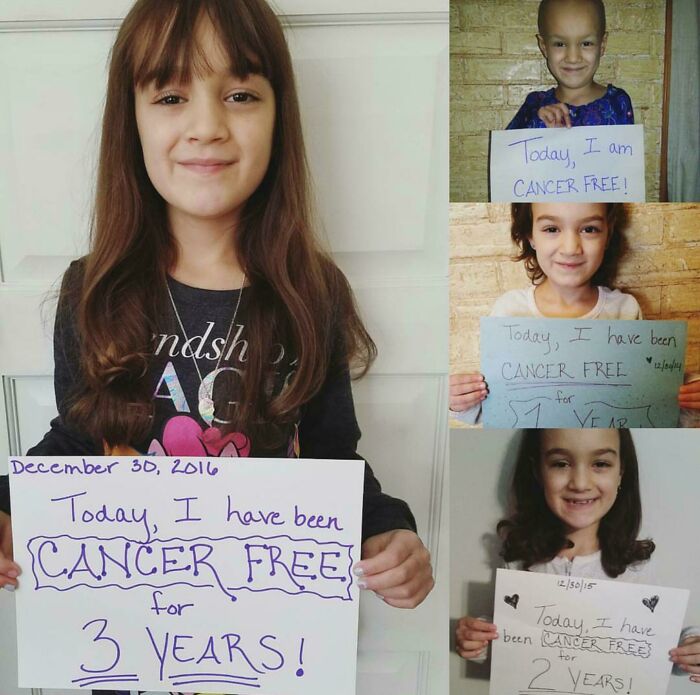 December 30, 2016
Today, I have been
CANCER FREE
for
3 YEARS!
Today, I am
CANCER FREE!
Today, I have been
CANCER FREE ♥ 12/30/14
for
1 YEAR
12/30/15
Today, I have
been CANCER FREE
for
2 YEARS!